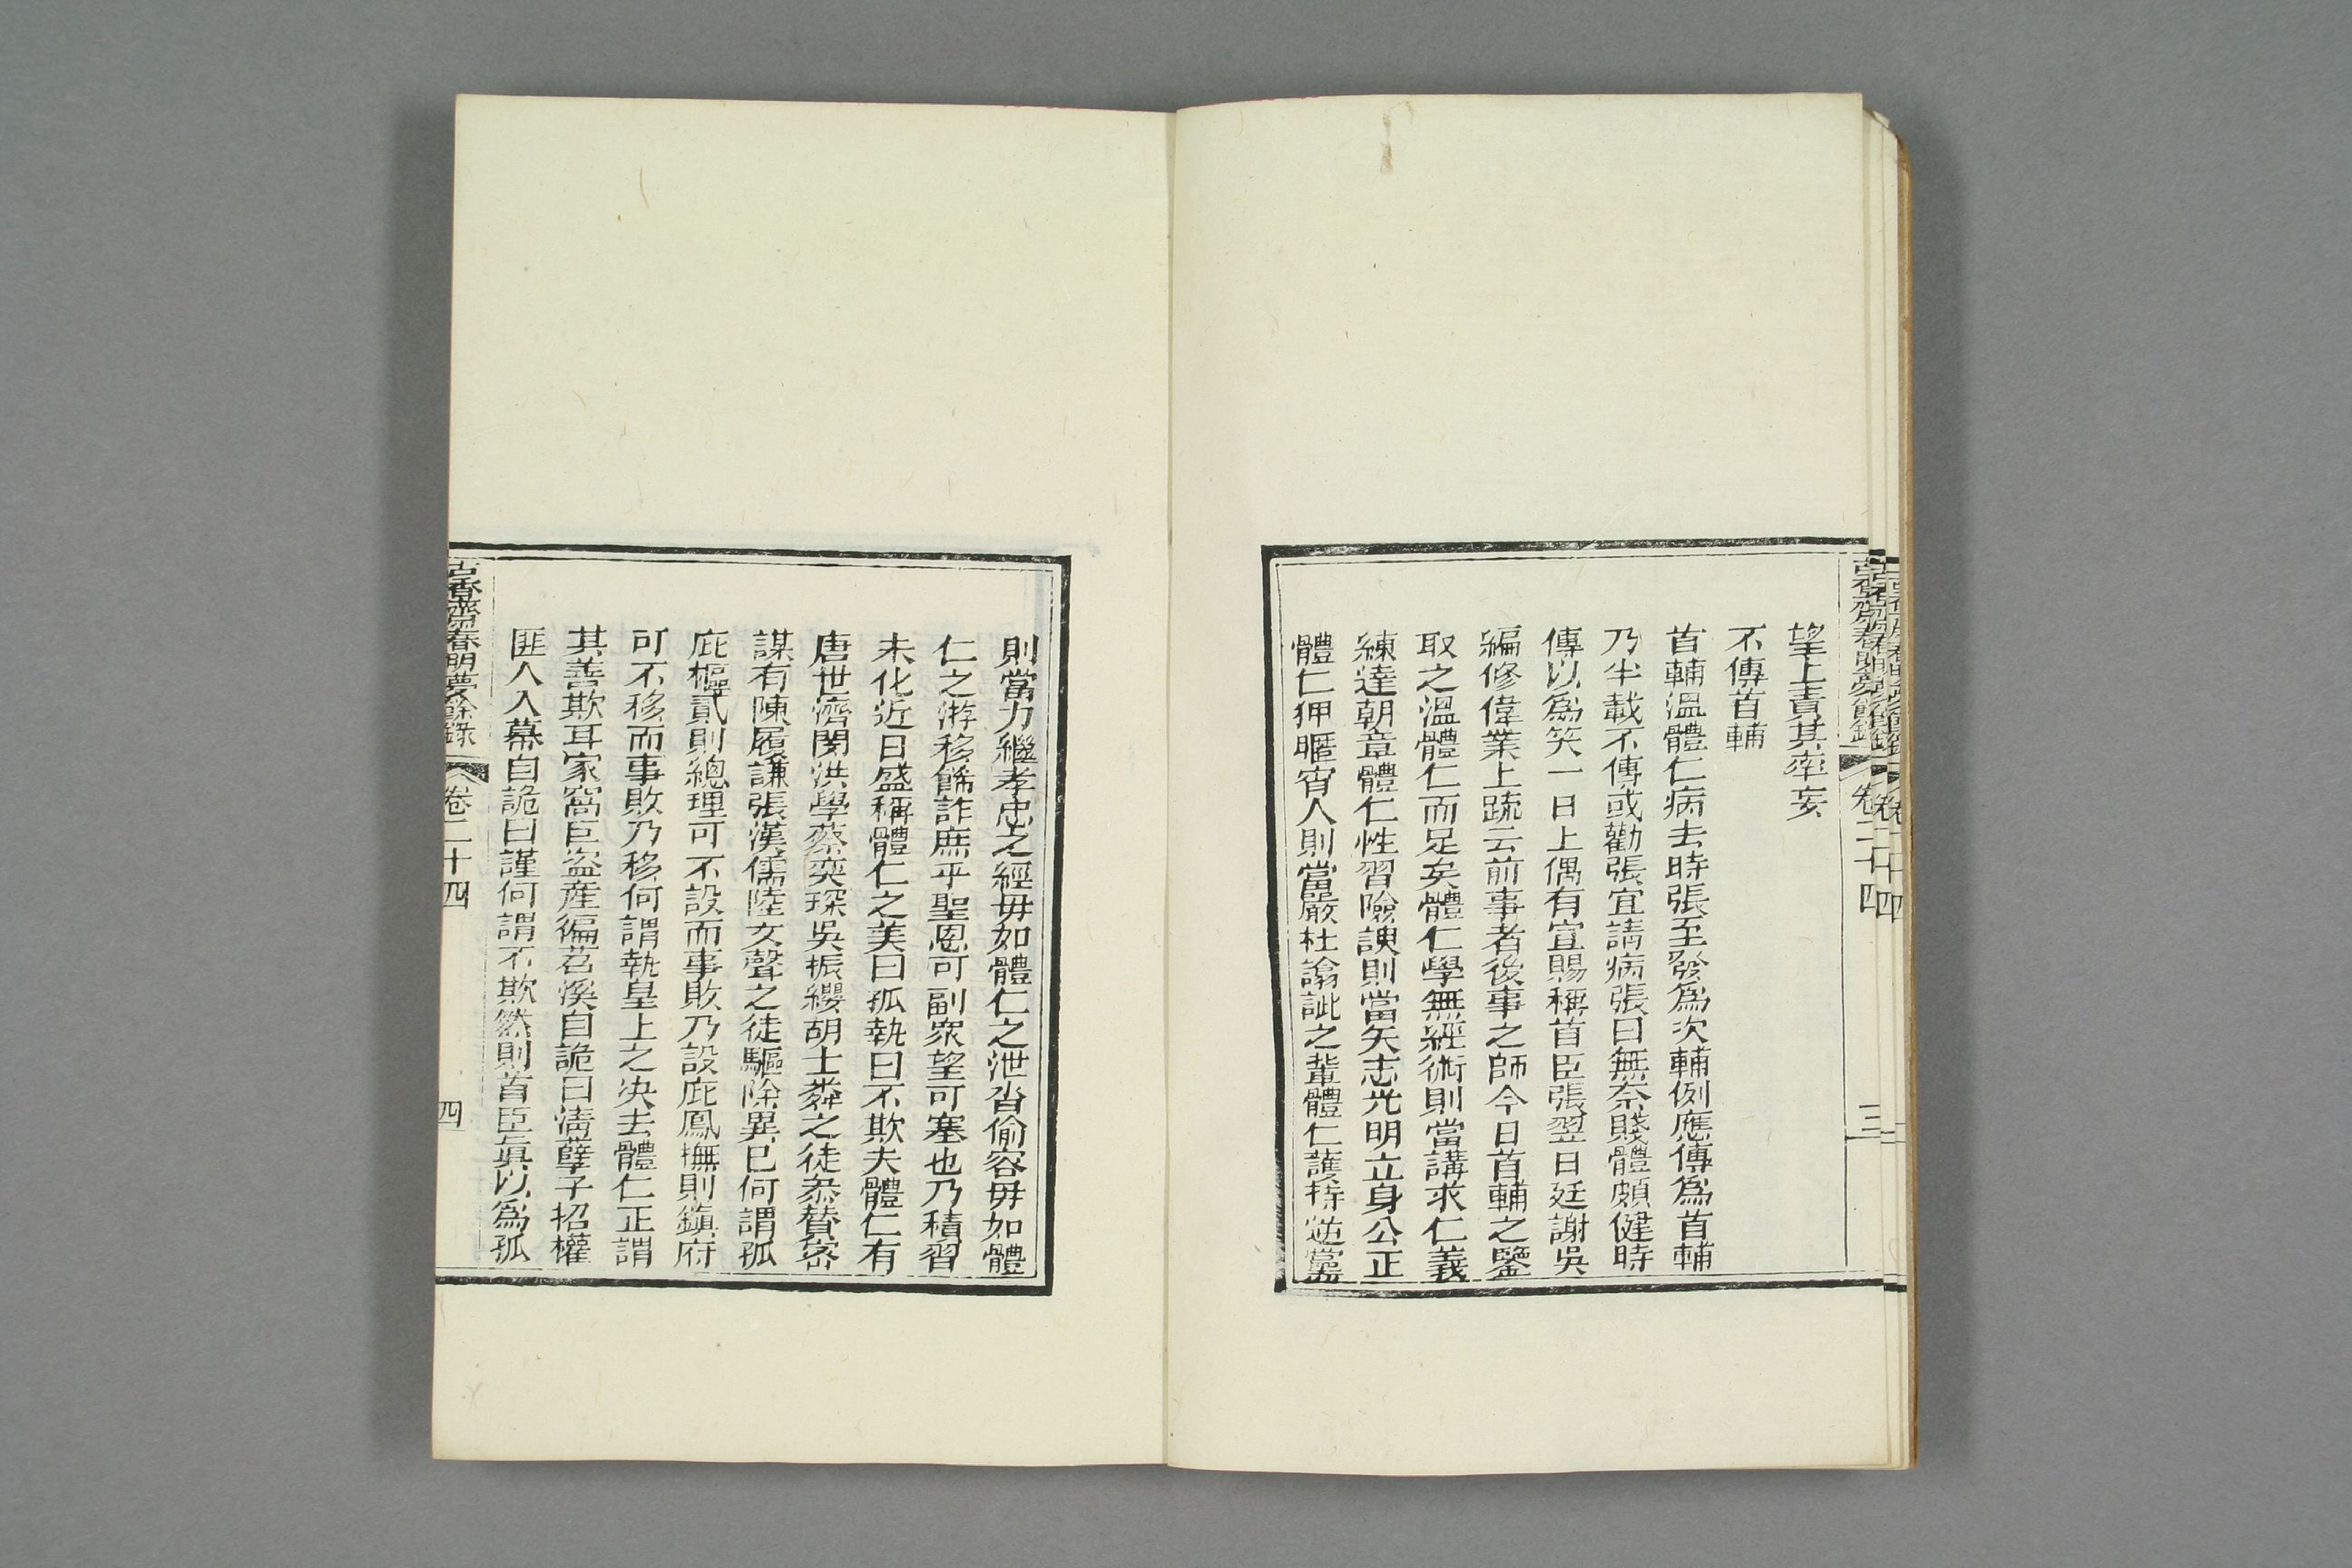 望上責其率妄
不傳首輔
首輔溫體仁病去時張至發爲次輔例應傳爲首輔
乃半載不傳或勸張宜請病張曰無奈賤體頗健時
傳以爲笑一日上偶有宣賜稱首臣張翌日廷謝吳
編修偉業上疏云前事者後事之師今日首輔之鑒
取之溫體仁而足矣體仁學無經術則當講求仁義
練達朝章體仁性習險諛則當矢志光明立身公正
體仁狎暱宵人則當嚴杜譸訿之輩體仁護持逆黨
則當力繼孝忠之經毋如體仁之泄沓偷容毋如體
仁之游移餙詐庶乎聖恩可副眾望可塞也乃積習
未化近日盛稱體仁之美曰孤執曰不欺夫體仁有
唐世濟閔洪學蔡奕琛吳振纓胡士㳟之徒叅贊密
謀有陳履謙張漢儒陸文聲之徒驅除異已何謂孤
庇樞貳則總理可不設而事敗乃設庇鳳撫則鎭府
可不移而事敗乃移何謂執皇上之决去體仁正謂
其善欺耳家窩巨盜産徧苕溪自詭曰淸孽子招權
匪人入幕自詭曰謹何謂不欺然則首臣眞以爲孤
古香齋春明夢餘錄
卷二十四
四
古香齋春明夢餘錄
卷二十四
三